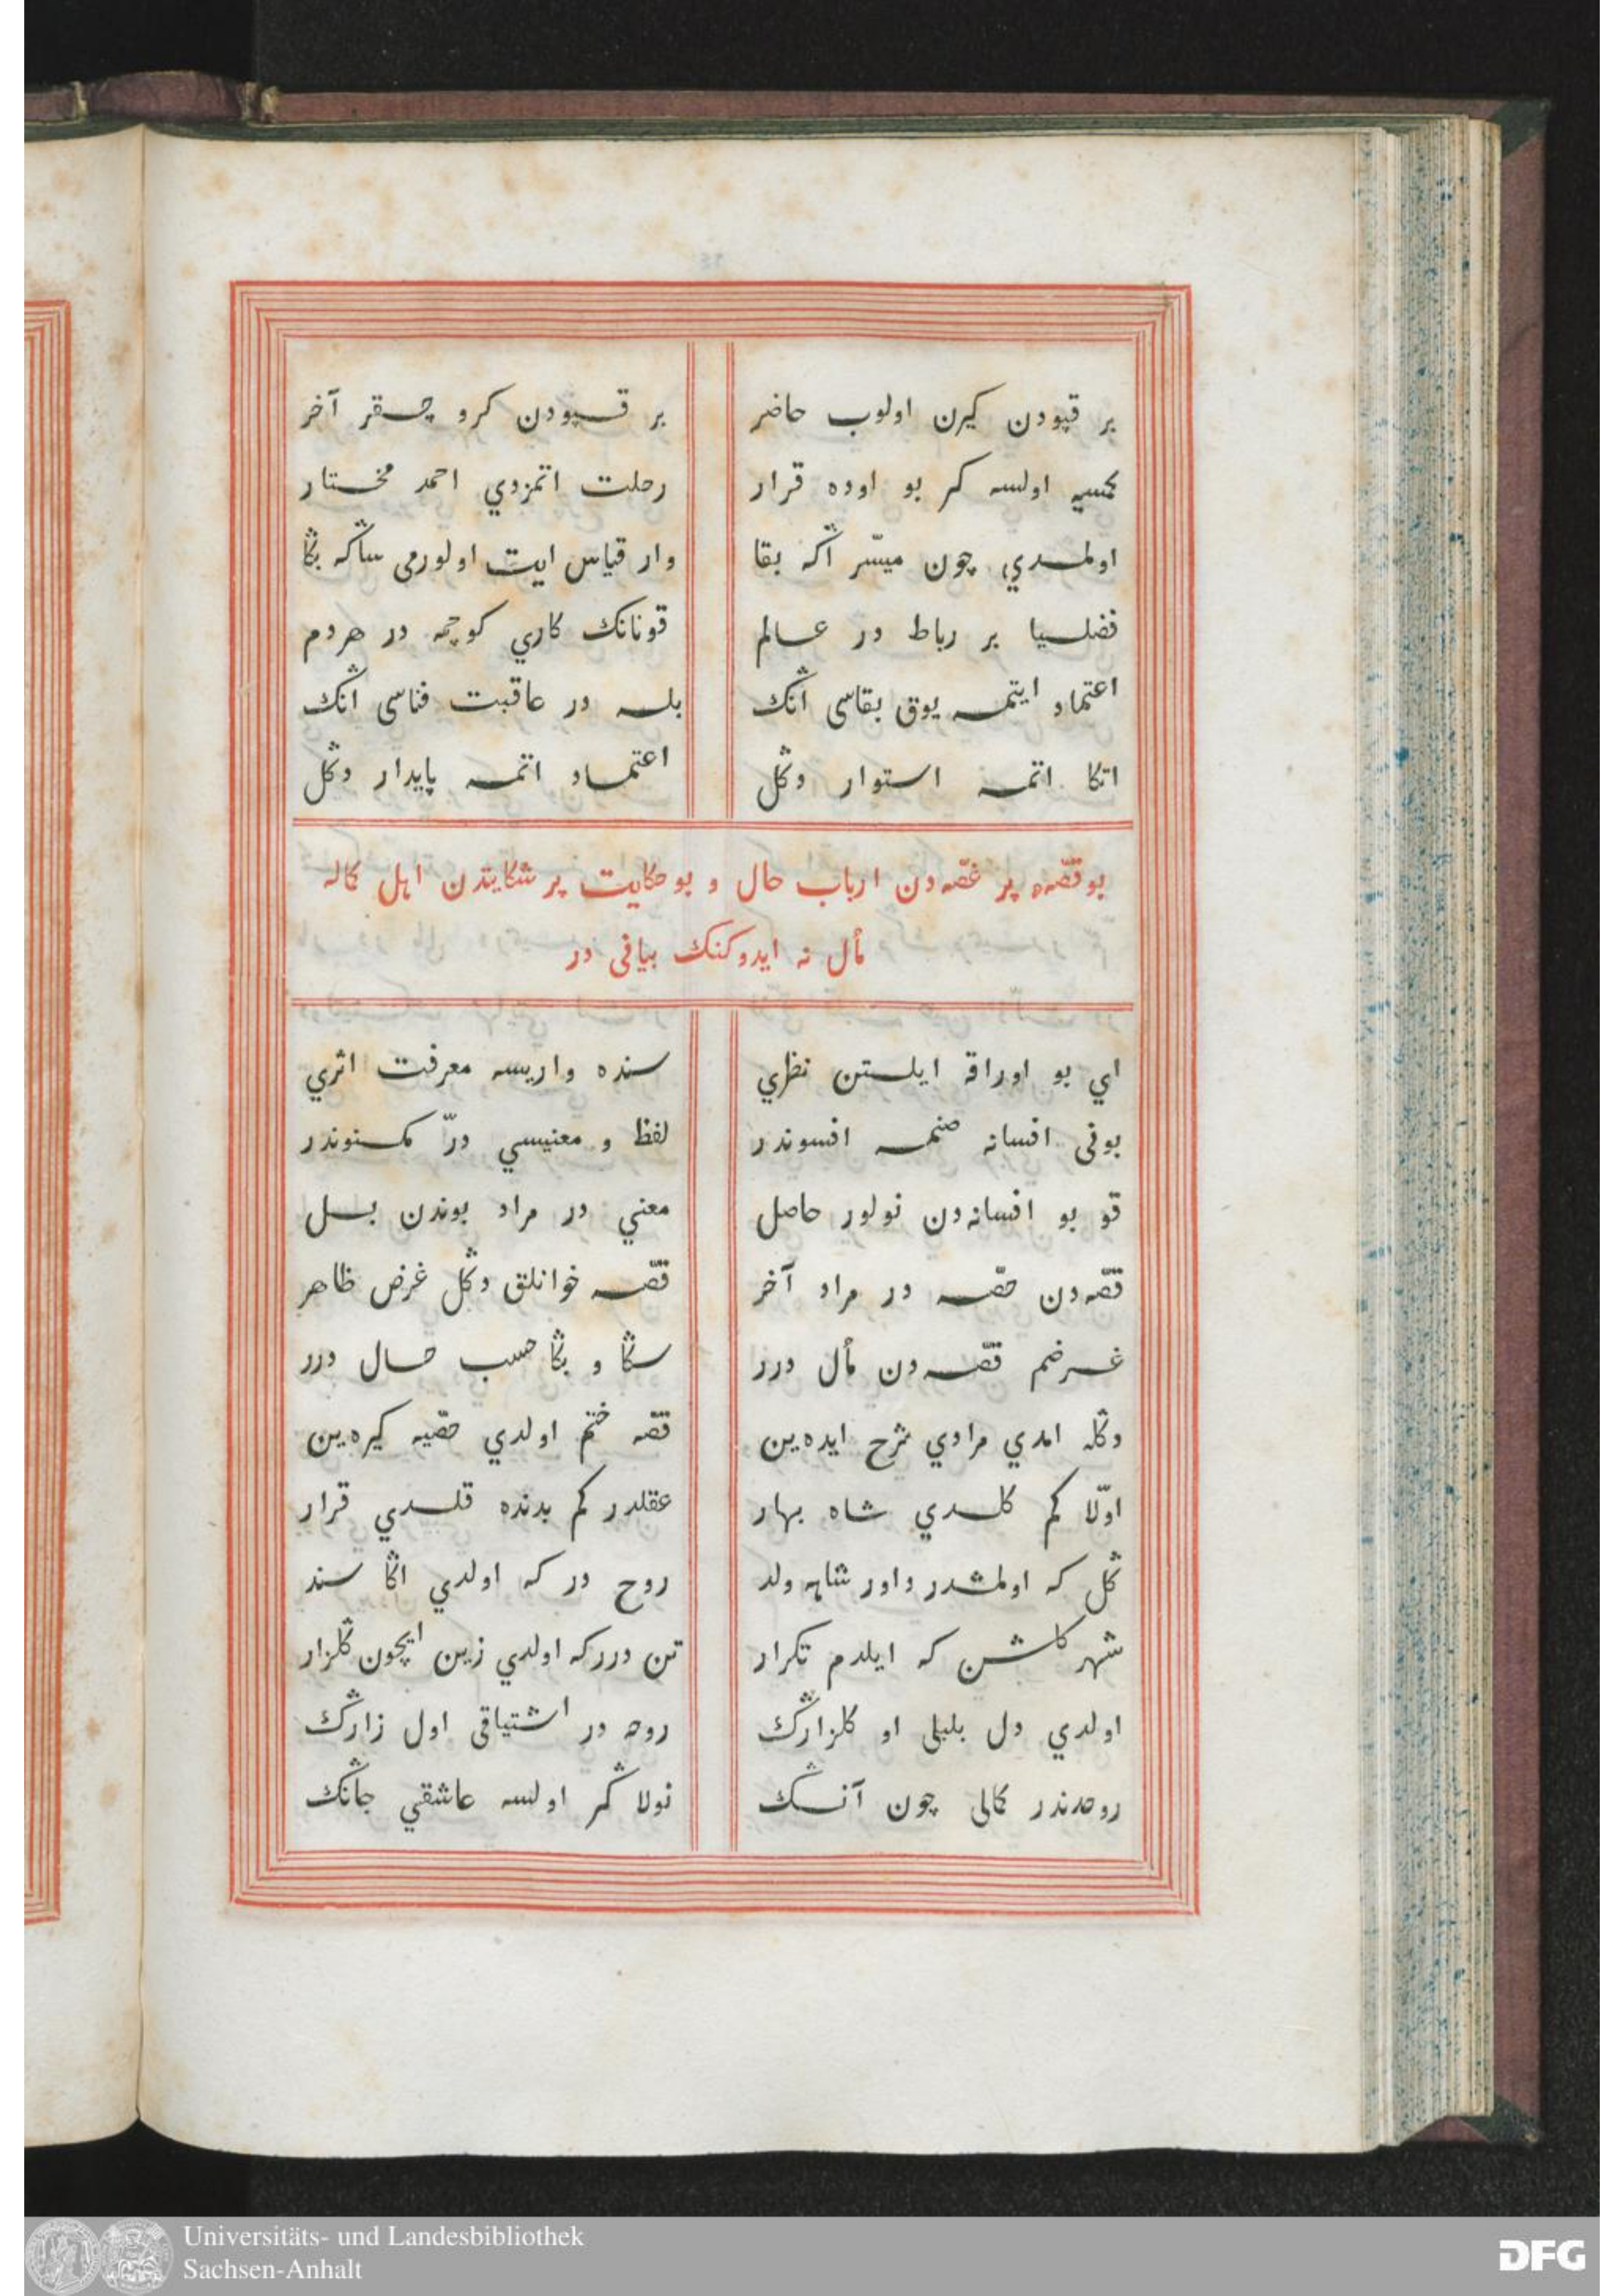 بر قپودن كیرن اولوب حاضر بر قپودن كرو چقر آخر
كمسیه اولسه كر بو اوده قرار رحلت اتمزدي احمد مختار
اولمدي چون میسّر آڭه بقا وار قیاس ایت اولورمی ساڭه بڭا
فضلیا بر رباط در عالم قونانك كاري كوچمه در هردم
اعتماد ایتمه یوق بقاسی آنڭ بله در عاقبت فناسی آنڭ
اتكا اتمه استوار دڭل اعتماد اتمه پایدار دڭل
بو قصّهء پر غصّه دن ارباب حال و بو حكایت پر شكایتدن اهل كماله
مأل نه ایدوكنك بیانی در
اي بو اوراقه ایلین نظري سنده واریسه معرفت اثري
بونی افسانه صنمه افسوندر لفظ و معنیسي درّ مكنوندر
قو بو افسانه دن نولور حاصل معني در مراد بوندن بل
قصّه دن حصّه در مراد آخر قصّه خوانلق دڭل غرض ظاهر
غرضم قصّه دن مأل درر سڭا و بڭا حسب حال درر
دڭله امدي مرادي شرح ایده ین قصّه ختم اولدي حصّیه كیره ین
اوّلا كم كلدي شاه بهار عقلدر كم بدنده قلدي قرار
ڭل كه اولمشدر داور شاهه ولد روح در كه اولدي اڭا سند
شهر كلشن كه ایلدم تكرار تن درر كه اولدي زین ایچون ڭلزار
اولدي دل بلبلی او كلزارڭ روحه در اشتیاقی اول زارڭ
روحدندر كمالی چون آنڭ نولا ڭر اولسه عاشقي جانڭ
Universitäts- und Landesbibliothek
Sachsen-Anhalt
DFG